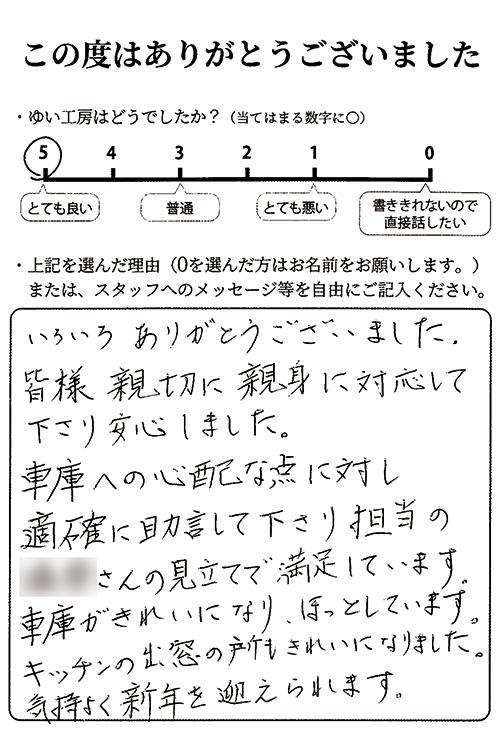 この度はありがとうございました
・ゆい工房はどうでしたか？（当てはまる数字に〇）
5 4 3 2 1 0
とても良い 普通 とても悪い 書ききれないので直接話したい
・上記を選んだ理由（0を選んだ方はお名前をお願いします。）
または、スタッフへのメッセージ等を自由にご記入ください。
いろいろ ありがとうございました.
皆様 親切に 親身に対応して
下さり安心しました。
車庫への心配な点に対し
適確に助言して下さり担当の
さんの見立てで満足しています。
車庫がきれいになり、ほっとしています。
キッチンの出窓の所もきれいになりました。
気持よく新年を迎えられます。